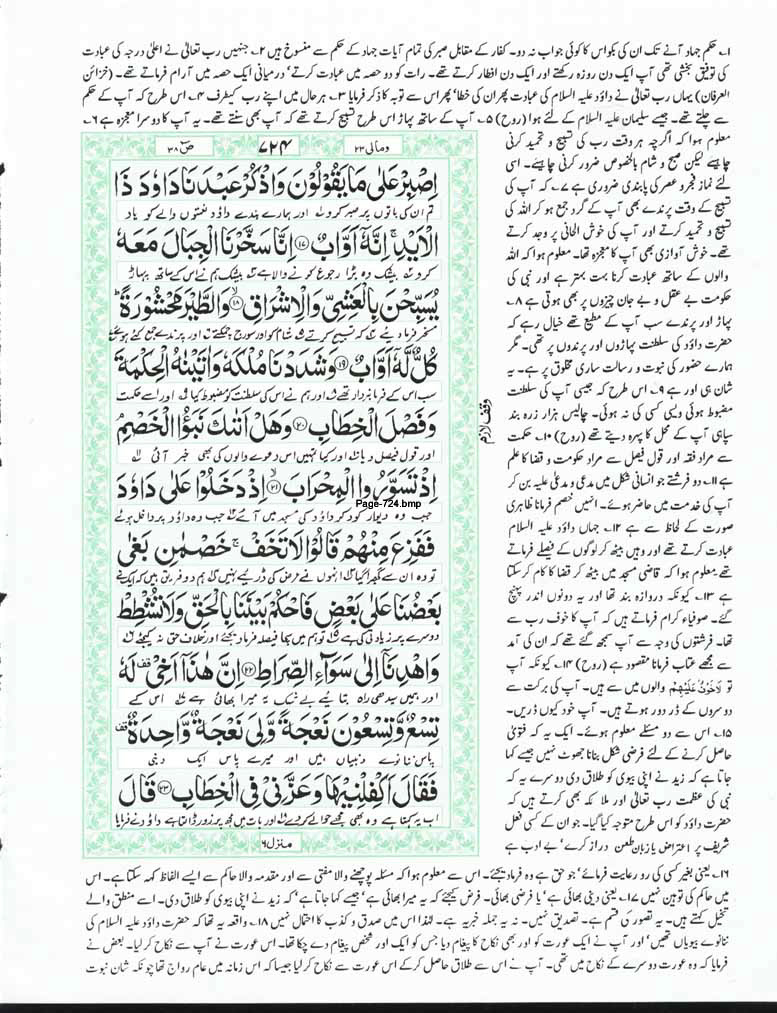 ۱؎ حکم جہاد آنے تک ان کی بکواس کا کوئی جواب نہ دو۔ کفار کے مقابل صبر کی تمام آیات جہاد کے حکم سے منسوخ ہیں ۲؎ جنہیں رب تعالٰی نے اعلٰی درجہ کی عبادت
کی توفیق بخشی تھی آپ ایک دن روزہ رکھتے اور ایک دن افطار کرتے تھے۔ رات کو دو حصہ میں عبادت کرتے' درمیانی ایک حصہ میں آرام فرماتے تھے۔ (خزائن
العرفان) یہاں رب تعالٰی نے داؤد علیہ السلام کی عبادت پھر ان کی خطا' پھر اس سے توبہ کا ذکر فرمایا ۳؎ ہر حال میں اپنے رب کیطرف ۴؎ اس طرح کہ آپ کے حکم
سے چلتے تھے۔ جیسے سلیمان علیہ السلام کے لئے ہوا (روح) ۵؎ آپ کے ساتھ پہاڑ اس طرح تسبیح کرتے تھے کہ آپ بھی سنتے تھے۔ یہ آپ کا دوسرا معجزہ ہے ۶؎
معلوم ہوا کہ اگرچہ ہر وقت رب کی تسبیح و تحمید کرنی
چاہیے لیکن صبح و شام بالخصوص ضرور کرنی چاہیے۔ اسی
لئے نماز فجر و عصر کی پابندی ضروری ہے ۷؎ کہ آپ کی
تسبیح کے وقت پرندے بھی آپ کے گرد جمع ہو کر اللہ کی
تسبیح و تحمید کرتے اور آپ کی خوش الحانی پر وجد کرتے
تھے۔ خوش آوازی بھی آپ کا معجزہ تھا۔ معلوم ہوا کہ اللہ
والوں کے ساتھ عبادت کرنا بہت بہتر ہے اور نبی کی
حکومت بے عقل و بے جان چیزوں پر بھی ہوتی ہے ۸؎
پہاڑ اور پرندے سب آپ کے مطیع تھے خیال رہے کہ
حضرت داؤد کی سلطنت پہاڑوں اور پرندوں پر تھی۔ مگر
ہمارے حضور کی نبوت و رسالت ساری مخلوق پر ہے۔ یہ
شان ہی اور ہے ۹؎ اس طرح کہ جیسی آپ کی سلطنت
مضبوط ہوئی ویسی کسی کی نہ ہوئی۔ چالیس ہزار زرہ بند
سپاہی آپ کے محل کا پہرہ دیتے تھے (روح) ۱۰؎ حکمت
سے مراد فقہ اور قول فیصل سے مراد حکومت و قضا کا علم
ہے ۱۱؎ دو فرشتے جو انسانی شکل میں مدعی و مدعٰی علیہ بن کر
آپ کی خدمت میں حاضر ہوئے۔ انہیں خصم فرمانا ظاہری
صورت کے لحاظ سے ہے ۱۲؎ جہاں داؤد علیہ السلام
عبادت کرتے تھے اور وہیں بیٹھ کر لوگوں کے فیصلے فرماتے
تھے معلوم ہوا کہ قاضی مسجد میں بیٹھ کر قضا کا کام کر سکتا
ہے ۱۳؎ کیونکہ دروازہ بند تھا اور یہ دونوں اندر پہنچ
گئے۔ صوفیاء کرام فرماتے ہیں کہ آپ کا خوف رب سے
تھا۔ فرشتوں کی وجہ سے آپ سمجھ گئے تھے کہ ان کی آمد
سے مجھے عتاب فرمانا مقصود ہے (روح) ۱۴؎ کیونکہ آپ
تو لَاخَوْفٌ عَلَیْهِمْ والوں میں سے ہیں۔ آپ کی برکت سے
دوسروں کے ڈر دور ہوتے ہیں۔ آپ خود کیوں ڈریں۔
۱۵؎ اس سے دو مسئلے معلوم ہوئے۔ ایک یہ کہ فتویٰ
حاصل کرنے کے لئے فرضی شکل بنانا جھوٹ نہیں جیسے کہا
جاتا ہے کہ زید نے اپنی بیوی کو طلاق دی دوسرے یہ کہ
نبی کی عظمت رب تعالٰی اور ملائکہ بھی کرتے ہیں کہ
حضرت داؤد کو اس طرح متوجہ کیا گیا۔ جو ان کے کسی فعل
شریف پر اعتراض یا زبان طعن دراز کرے' بے ادب ہے
ومالی ۲۳ ۷۲۴ صٓ ۳۸
اِصْبِرْ عَلٰى مَا یَقُوْلُوْنَ وَاذْكُرْ عَبْدَنَا دَاوٗدَ ذَا
تم ان کی باتوں پر صبر کرو ۱؎ اور ہمارے بندے داؤد نعمتوں والے کو یاد
الْاَیْدِ ۚ اِنَّهٗۤ اَوَّابٌ ۝۱۷ اِنَّا سَخَّرْنَا الْجِبَالَ مَعَهٗ
کرو ۲؎ بیشک وہ بڑا رجوع کرنے والا ہے ۳؎ بیشک ہم نے اس کے ساتھ پہاڑ
یُسَبِّحْنَ بِالْعَشِیِّ وَالْاِشْرَاقِ ۝۱۸ وَالطَّیْرَ مَحْشُوْرَةً ؕ
مسخر فرما دیئے ۴؎ کہ تسبیح کرتے ۵؎ شام کو اور سورج چمکتے ۶؎ اور پرندے جمع کئے ہوئے ۷؎
كُلٌّ لَّهٗۤ اَوَّابٌ ۝۱۹ وَشَدَدْنَا مُلْكَهٗ وَاٰتَیْنٰهُ الْحِكْمَةَ
سب اس کے فرمانبردار تھے ۸؎ اور ہم نے اس کی سلطنت کو مضبوط کیا ۹؎ اور اسے حکمت
وَفَصْلَ الْخِطَابِ ۝۲۰ وَهَلْ اَتٰىكَ نَبَؤُا الْخَصْمِ ۘ
اور قول فیصل دیا ۱۰؎ اور کیا تمہیں اس دعوے والوں کی بھی خبر آئی ۱۱؎
اِذْ تَسَوَّرُوا الْمِحْرَابَ ۝۲۱ اِذْ دَخَلُوْا عَلٰى دَاوٗدَ
Page-724.bmp
جب وہ دیوار کود کر داؤد کی مسجد میں آئے ۱۲؎ جب وہ داؤد پر داخل ہوئے
فَفَزِعَ مِنْهُمْ قَالُوْا لَا تَخَفْ ۚ خَصْمٰنِ بَغٰى
تو وہ ان سے گھبرا گیا ۱۳؎ انہوں نے عرض کی ڈریے نہیں ۱۴؎ ہم دو فریق ہیں کہ ایک نے
بَعْضُنَا عَلٰى بَعْضٍ فَاحْكُمْ بَیْنَنَا بِالْحَقِّ وَلَا تُشْطِطْ
دوسرے پر زیادتی کی ہے ۱۵؎ تو ہم میں سچا فیصلہ فرما دیجئے اور خلاف حق نہ کیجئے ۱۶؎
وَاهْدِنَاۤ اِلٰى سَوَآءِ الصِّرَاطِ ۝۲۲ اِنَّ هٰذَاۤ اَخِیْ ۫ لَهٗ
اور ہمیں سیدھی راہ بتائیے بے شک یہ میرا بھائی ہے ۱۷؎ اس کے
تِسْعٌ وَّتِسْعُوْنَ نَعْجَةً وَّلِیَ نَعْجَةٌ وَّاحِدَةٌ ۫
پاس ننانوے دنبیاں ہیں اور میرے پاس ایک دنبی
فَقَالَ اَكْفِلْنِیْهَا وَعَزَّنِیْ فِی الْخِطَابِ ۝۲۳ قَالَ
اب یہ کہتا ہے وہ بھی مجھے حوالے کر دے ۱۸؎ اور بات میں مجھ پر زور ڈالتا ہے داؤد نے فرمایا
منزل ۶
وقف لازم
۱۶؎ یعنی بغیر کسی کی رو رعایت فرمائے' جو حق ہے وہ فرما دیجئے۔ اس سے معلوم ہوا کہ مسئلہ پوچھنے والا مفتی سے اور مقدمہ والا حاکم سے ایسے الفاظ کہہ سکتا ہے۔ اس
میں حاکم کی توہین نہیں ۱۷؎ یعنی دینی بھائی ہے' یا فرضی بھائی۔ فرض کیجئے کہ یہ میرا بھائی ہے' جیسے کہا جاتا ہے' کہ زید نے اپنی بیوی کو طلاق دی۔ اسے منطق والے
تخئیل کہتے ہیں۔ یہ تصور کی قسم ہے۔ تصدیق نہیں۔ نہ یہ جملہ خبریہ ہے۔ لہٰذا اس میں صدق و کذب کا احتمال نہیں ۱۸؎ واقعہ یہ تھا کہ حضرت داؤد علیہ السلام کی
ننانوے بیویاں تھیں' اور آپ نے ایک عورت کو اور بھی نکاح کا پیغام دیا جس کو ایک اور شخص پیغام دے چکا تھا۔ اس عورت نے آپ سے نکاح کر لیا۔ بعض نے
فرمایا کہ وہ عورت دوسرے کے نکاح میں تھی۔ آپ نے اس سے طلاق حاصل کر کے اس عورت سے نکاح کر لیا جیسا کہ اس زمانہ میں عام رواج تھا چونکہ شان نبوت